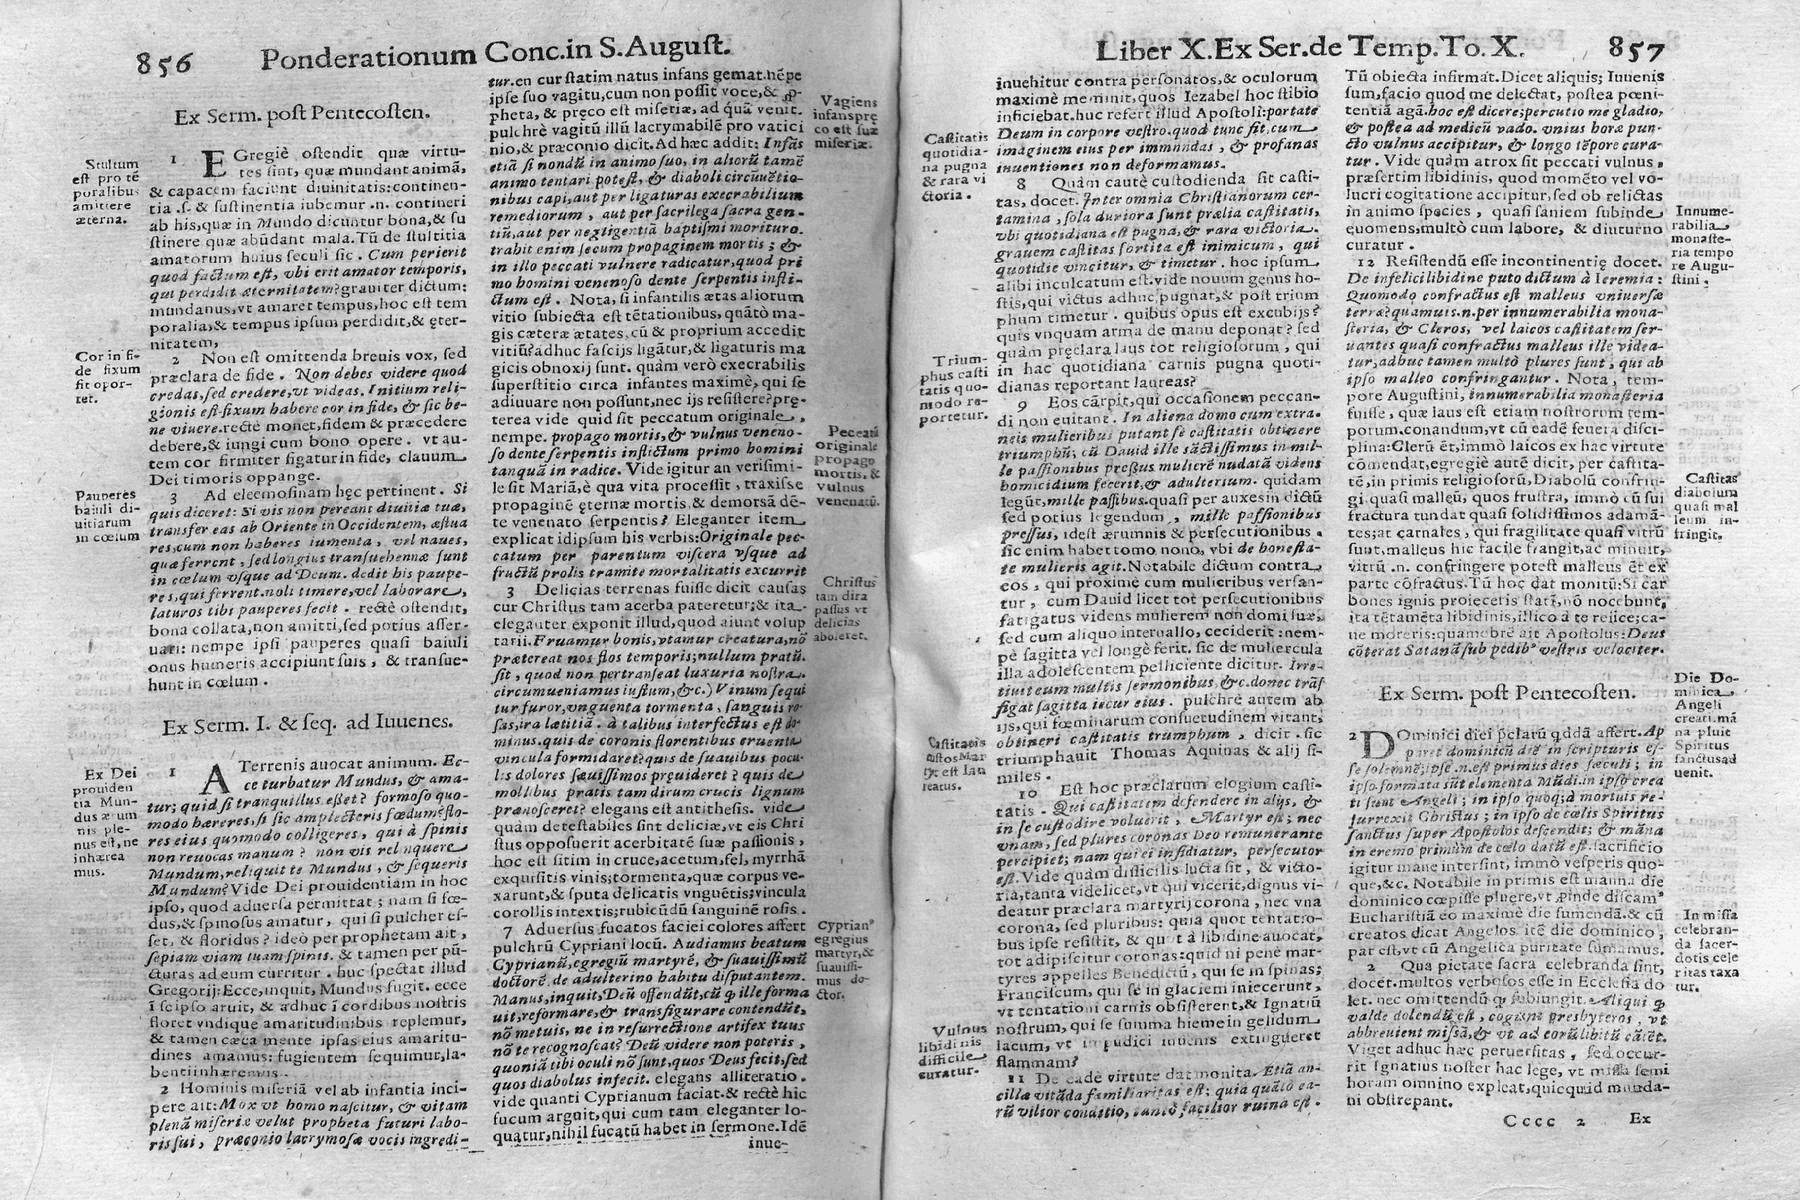 856 Ponderationum Conc.in S.August.
Ex Serm. post Pentecosten.
Stultum
est pro tē
poralibus
amittere
æterna.
1 EGregiè ostendit quæ virtu-
tes sint, quæ mundant animā,
& capacem faciunt diuinitatis:continen-
tia .s. & sustinentia iubemur .n. contineri
ab his,quæ in Mundo dicuntur bona,& su
stinere quæ abūdant mala.Tū de stultitia
amatorum huius seculi sic . Cum perierit
quod factum est, vbi erit amator temporis,
qui perdidit æternitatem?grauiter dictum:
mundanus,vt amaret tempus,hoc est tem
poralia,& tempus ipsum perdidit,& ęter-
nitatem,
Cor in fi-
de fixum
sit opor-
tet.
2 Non est omittenda breuis vox, sed
præclara de fide . Non debes videre quod
credas,sed credere,vt videas. Initium reli-
gionis est fixum habere cor in fide, & sic be-
ne viuere.rectè monet,fidem & præcedere
debere,& iungi cum bono opere . vt au-
tem cor firmiter figatur in fide, clauum
Dei timoris oppange.
Pauperes
baiuli di-
uitiarum
in cœlum
3 Ad eleemosinam hęc pertinent. Si
quis diceret: Si vis non pereant diuitiæ tuæ,
transfer eas ab Oriente in Occidentem, æstua
res,cum non haberes iumenta, vel naues,
quæ ferrent, sed longius transuehennæ sunt
in cœlum vsque ad Deum. dedit his paupe-
res,qui ferrent.noli timere,vel laborare,
laturos tibi pauperes fecit . rectè ostendit,
bona collata,non amitti,sed potius asser-
uari: nempe ipsi pauperes quasi baiuli
onus humeris accipiunt suis, & transue-
hunt in cœlum .
Ex Serm. I. & seq. ad Iuuenes.
Ex Dei
prouiden
tia Mun-
dus ærum
nis ple-
nus est,ne
inhærea
mus.
1 A Terrenis auocat animum. Ec-
ce turbatur Mundus, & ama-
tur; quid si tranquillus esset? formoso quo-
modo hæreres,si sic amplecteris fœdum?flo-
res eius quomodo colligeres, qui à spinis
non reuocas manum? non vis relinquere
Mundum,reliquit te Mundus, & sequeris
Mundum?Vide Dei prouidentiam in hoc
ipso, quod aduersa permittat; nam si fœ-
dus,& spinosus amatur, qui si pulcher es-
set, & floridus? ideò per prophetam ait,
sepiam viam tuam spinis. & tamen per pū-
cturas ad eum curritur . huc spectat illud
Gregorij:Ecce,inquit, Mundus fugit. ecce
ī seipso aruit, & adhuc ī cordibus nostris
floret vndique amaritudinibus replemur,
& tamen cæca mente ipsas eius amaritu-
dines amamus: fugientem sequimur,la-
benti inhæremus.
2 Hominis miseriā vel ab infantia inci-
pere ait:Mox vt homo nascitur, & vitam
plenā miseriæ velut propheta futuri labo-
ris sui, præconio lacrymosæ vocis ingredi-
tur.en cur statim natus infans gemat.nēpe
ipse suo vagitu,cum non possit voce,& p-
pheta, & pręco est miseriæ, ad quā venit.
pulchrè vagitū illū lacrymabilē pro vatici
nio,& præconio dicit. Ad hæc addit: Infās
etiā si nondū in animo suo, in aliorū tamē
animo tentari potest, & diaboli circūuētio-
nibus capi,aut per ligaturas execrabilium
remediorum, aut per sacrilega sacra gen-
tiū,aut per negligentiā baptismi morituro.
trahit enim secum propaginem mortis; &
in illo peccati vulnere radicatur,quod pri
mo homini venenoso dente serpentis insti-
ctum est . Nota, si infantilis ætas aliorum
vitio subiecta est tētationibus,quātò ma-
gis cæteræ ætates,cū & proprium accedit
vitiū?adhuc fascijs ligātur,& ligaturis ma
gicis obnoxij sunt. quàm verò execrabilis
superstitio circa infantes maximè, qui se
adiuuare non possunt,nec ijs resistere?pręterea vide quid sit peccatum originale,
nempe. propago mortis,& vulnus veneno-
so dente serpentis inflictum primo homini
tanquā in radice. Vide igitur an verisimi-
le sit Mariā,è qua vita processit, traxisse
propaginē ęternæ mortis,& demorsā dē-
te venenato serpentis? Eleganter item
explicat idipsum his verbis:Originale pec-
catum per parentum viscera vsque ad
fructū prolis tramite mortalitatis excurrit
Vagiens
infanspræ
co est suæ
miseriæ.
Peccatū
originale
propago
mortis, &
vulnus
venenatū.
3 Delicias terrenas fuisse dicit causas
cur Christus tam acerba pateretur;& ita
eleganter exponit illud,quod aiunt volup
tarii.Fruamur bonis,vtamur creatura,nō
prætereat nos flos temporis;nullum pratū
sit, quod non pertranseat luxuria nostra.
circumueniamus iustum,&c.) Vinum sequi
tur furor,vnguenta tormenta, sanguis ro-
sas,ira lætitiā. à talibus interfectus est do-
minus.quis de coronis florentibus eruenta
vincula formidaret?quis de suauibus pocu-
lis dolores sæuissimos pręuideret? quis de
mollibus pratis tam dirum crucis lignum
prænosceret? elegans est antithesis. vide
quàm detestabiles sint deliciæ,vt eis Chri
stus opposuerit acerbitatē suæ passionis,
hoc est sitim in cruce,acetum,fel, myrrhā
exquisitis vinis;tormenta,quæ corpus ve-
xarunt,& sputa delicatis vnguētis;vincula
corollis intextis;rubicūdū sanguinē rosis.
Christus
tam dira
passus vt
delicias
aboleret.
7 Aduersus fucatos faciei colores affert
pulchrū Cypriani locū. Audiamus beatum
Cyprianū,egregiū martyrē, & suauissimū
doctorē de adulterino habitu disputantem.
Manus,inquit,Deū offendūt,cū q ille forma
uit,reformare,& transfigurare contendūt,
nō metuis, ne in resurrectione artifex tuus
nō te recognoscat? Deū videre non poteris,
quoniā tibi oculi nō sunt,quos Deus fecit,sed
quos diabolus infecit. elegans alliteratio.
vide quanti Cyprianum faciat.& rectè hic
fucum arguit,qui cum tam eleganter lo-
quatur,nihil fucatū habet in sermone.Idē
Cyprian9
egregius
martyr,&
suauissi-
mus do-
ctor.
inue-
Liber X.Ex Ser.de Temp.To.X. 857
inuehitur contra personatos,& oculorum
maximè meminit,quos Iezabel hoc stibio
inficiebat.huc refert illud Apostoli:portate
Deum in corpore vestro.quod tunc fit,cum
imaginem eius per immundas, & profanas
inuentiones non deformamus.
Castitatis
quotidia-
na pugna
& rara vi
ctoria.
8 Quàm cautè custodienda sit casti-
tas, docet. Inter omnia Christianorum cer-
tamina, sola duriora sunt prælia castitatis,
vbi quotidiana est pugna,& rara victoria.
grauem castitas sortita est inimicum, qui
quotidie vincitur, & timetur. hoc ipsum
alibi inculcatum est.vide nouum genus ho-
stis,qui victus adhuc pugnat,& post trium
phum timetur . quibus opus est excubijs?
quis vnquam arma de manu deponat? sed
quàm pręclara laus tot religiosorum, qui
in hac quotidiana carnis pugna quoti-
dianas reportant laureas?
Trium-
phus casti
tatis quo-
modo re-
portetur.
9 Eos cārpit,qui occasionem peccan-
di non euitant. In aliena domo cum extra-
neis mulieribus putant se castitatis obtinere
triumphū; cū Dauid ille sāctissimus in mil-
le passionibus pressus mulierē nudatā videns
homicidium fecerit,& adulterium. quidam
legūt,mille passibus.quasi per auxesin dictū
sed potius legendum, mille passionibus
pressus, idest ærumnis & persecutionibus.
sic enim habet tomo nono, vbi de honesta-
te mulieris agit. Notabile dictum contra
eos, qui proximè cum mulieribus versan-
tur, cum Dauid licet tot persecutionibus
fatigatus videns mulierem non domi suæ,
sed cum aliquo interuallo, ceciderit: nem-
pè sagitta vel longè ferit. sic de muliercula
illa adolescentem pelliciente dicitur. Irre-
tiuit eum multis sermonibus &c.donec trāf
figat sagitta iecur eius . pulchrè autem ab
ijs,qui fœminarum consuetudinem vitant,
obtineri castitatis triumphum, dicit . sic
triumphauit Thomas Aquinas & alij si-
miles .
Castitatis
custos Mar
tyr est lau
reatus.
10 Est hoc præclarum elogium casti-
tatis . Qui castitatem defendere in alijs, &
in se custodire voluerit, Martyr est; nec
vnam, sed plures coronas Deo remunerante
percipiet; nam qui ei insidiatur, persecutor
est. Vide quàm difficilis lucta sit, & victo-
ria,tanta videlicet,vt qui vicerit,dignus vi-
deatur præclara martyrij corona, nec vna
corona, sed pluribus: quia quot tentatio-
bus ipse resistit, & quot à libidine auocat,
tot adipiscitur coronas:quid ni pene mar-
tyres appelles Benedictū, qui se in spinas;
Franciscum, qui se in glaciem iniecerunt,
vt tentationi carnis obsisterent,& Ignatiū
nostrum, qui se summa hieme in gelidum
lacum, vt impudici iuuenis extingueret
flammam?
Vulnus
libidinis
difficile
curatur.
11 De eadē virtute dat monita. Etiā an-
cillæ vitāda familiaritas est; quia quātò an-
rū vilior conditio, tantò facilior ruina est .
Tū obiecta infirmat. Dicet aliquis; Iuuenis
sum,facio quod me delectat, postea pœni-
tentiā agā.hoc est dicere;percutio me gladio,
& postea ad medicū vado. vnius horæ pun-
cto vulnus accipitur, & longo tēpore cura-
tur . Vide quàm atrox sit peccati vulnus,
præsertim libidinis, quod momēto vel vo-
lucri cogitatione accipitur,sed ob relictas
in animo species, quasi saniem subinde
euomens,multò cum labore, & diuturno
curatur .
Innume-
rabilia
monaste-
ria tempo
re Augu-
stini.
12 Resistendū esse incontinentię docet.
De infelici libidine puto dictum à Ieremia:
Quomodo confractus est malleus vniuersæ
terræ?quamuis.n.per innumerabilia mona-
steria, & Cleros, vel laicos castitatem ser-
uantes quasi confractus malleus ille videa-
tur,adhuc tamen multò plures sunt, qui ab
ipso malleo confringantur. Nota, tem-
pore Augustini, innumerabilia monasteria
fuisse, quæ laus est etiam nostrorum tem-
porum.conandum,vt cū eadē feuera disci-
plina:Clerū ēt,immò laicos ex hac virtute
cōmendat,egregiè autē dicit, per castita-
tē,in primis religiosorū,Diabolū confrin-
gi,quasi malleū,quos frustra, immò cū sui
fractura tundat quasi solidissimos adamā-
tes;at carnales, qui fragilitate quasi vitrū
sunt,malleus hic facile frangit,ac minuit,
vitrū .n. confringere potest malleus ēt ex
parte cōfractus.Tū hoc dat monitū:Si car
bones ignis proieceris statī,nō nocebunt,
ita tētamēta libidinis,illico à te reijce;ca-
ue moreris:quamobrē ait Apostolus:Deus
cōterat Satanā sub pedib9 vestris velociter.
Castitas
diabolum
quasi mal
leum in-
fringit.
Ex Serm. post Pentecosten.
Die Do-
minica
Angeli
creati.mā
na pluit
Spiritus
sanctus ad
uenit.
2 DOminici diei pclarū qddā affert. Ap
paret dominicū diē in scripturis es-
se solemnē;ipse .n.est primus dies seculi; in
ipso formata sūt elementa Mūdi.in ipso crea
ti sunt Angeli; in ipso quoq; à mortuis re-
surrexit Christus; in ipso de cœlis Spiritus
sanctus super Apostolos descendit; & māna
in eremo primum de cœlo datū est. sacrificio
igitur mane intersint, immò vesperis quo-
que,&c. Notabile in primis est manna die
dominico cœpisse pluere,vt pinde discam9
Eucharistiā eo maximè die sumendā.& cū
creatos dicat Angelos itē die dominico,
par est,vt cū Angelica puritate sumamus.
In missa
celebran-
da sacer-
dotis cele
ritas taxa
tur.
2 Qua pietate sacra celebranda sint,
docet.multos verbosos esse in Ecclesia do
let. nec omittendū q subiungit. Aliqui q
valde dolendū est, cogunt presbyteros, vt
abbreuient missā,& vt ad eorū libitū cātēt.
Viget adhuc hæc peruersitas, sed occur-
rit Ignatius noster hac lege, vt missa semi
horam omnino expleat,quicquid munda-
ni obstrepant.
Cccc 2 Ex